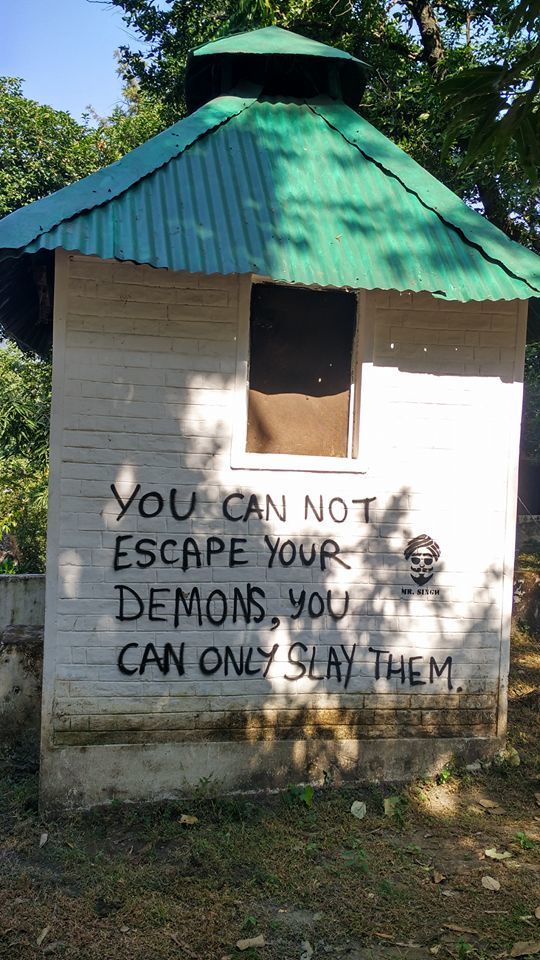 YOU CAN NOT
ESCAPE YOUR
DEMONS, YOU
CAN ONLY SLAY THEM.
MR. SINGH